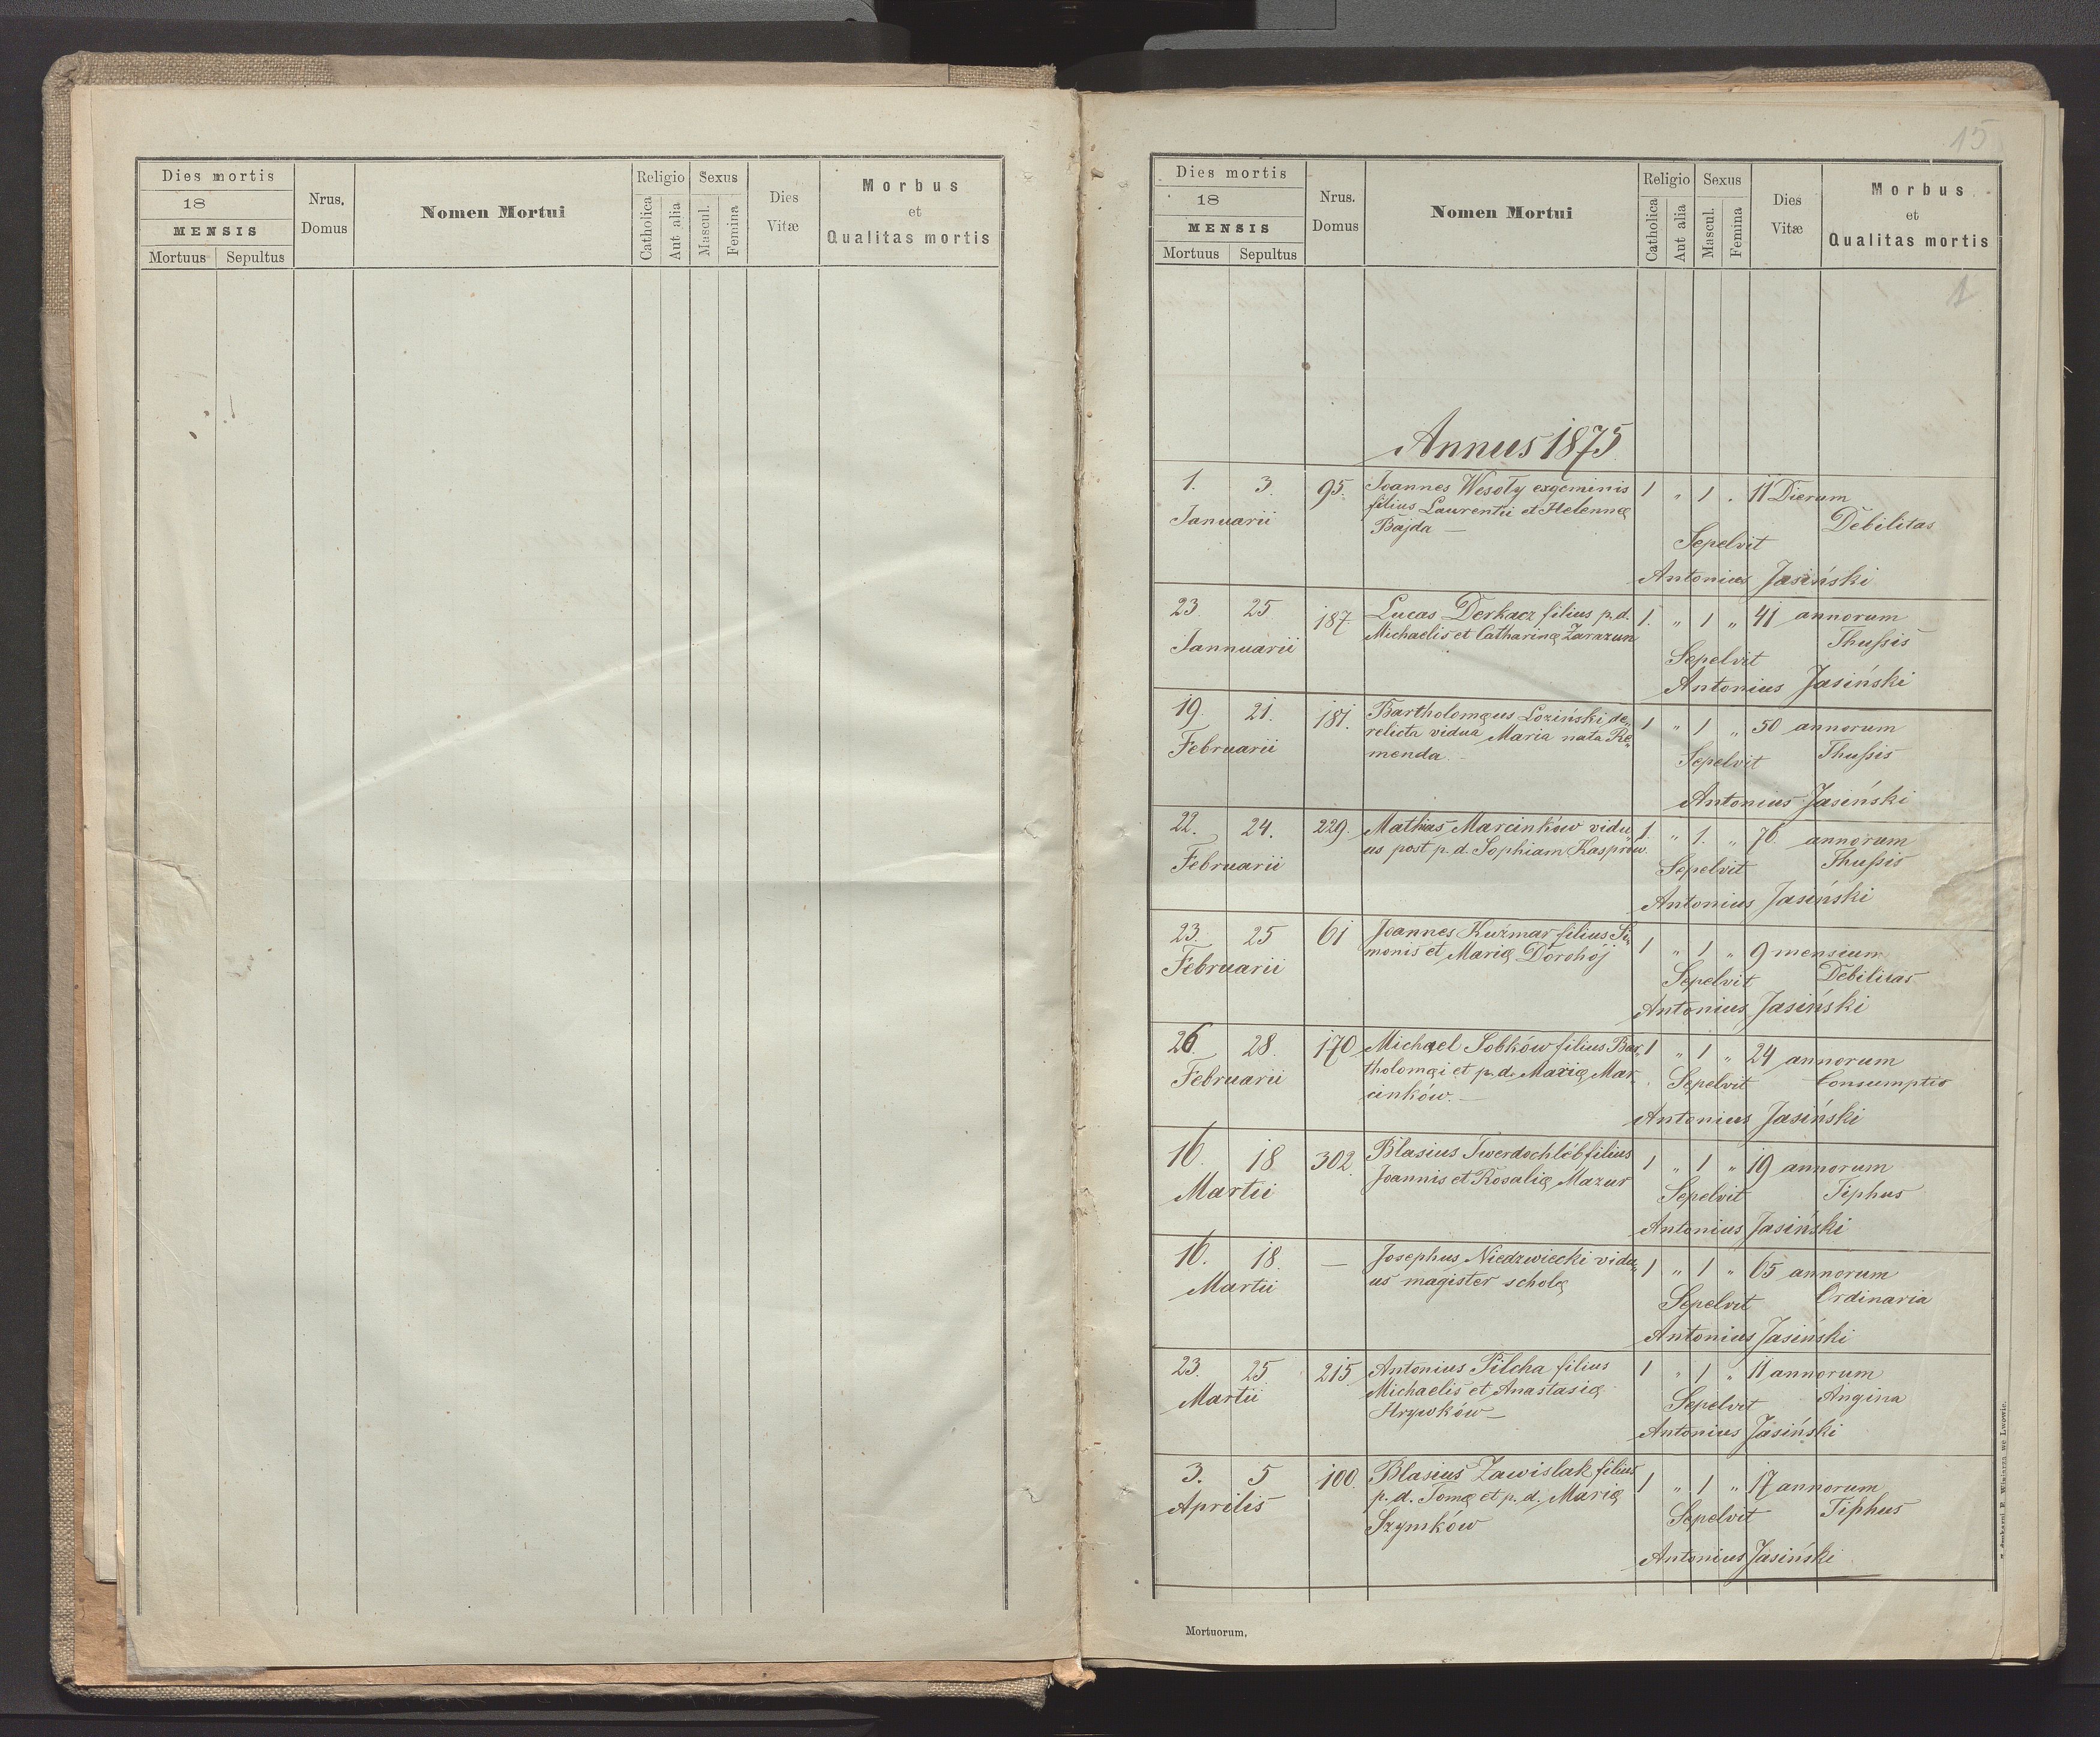 Dies mortis
18
MENSIS
Mortuus Sepultus
Nrus.
Domus
Nomen Mortui
Religio
Catholica
Aut alia
Sexus
Mascul.
Femina
Dies
Vitæ
Morbus
et
Qualitas mortis
15
Dies mortis
18
MENSIS
Mortuus Sepultus
Nrus.
Domus
Nomen Mortui
Religio
Catholica
Aut alia
Sexus
Mascul.
Femina
Dies
Vitæ
Morbus
et
Qualitas mortis
1
Annus 1875
1. 3. 95. Joannes Wesoły exgeminis 1 " 1 " 11 Dierum
Januarii filius Laurentii et Helennę Debilitas
Bajda —
Sepelvit
Antonius Jasiński
23 25 187 Lucas Derkacz filius p.d. 1. " 1 " 41 annorum
Jannuarii Michaelis et Catharinę Zarazun Thußis
Sepelvit
Antonius Jasiński
19. 21. 181. Bartholomęus Loziński de„ 1 " 1 " 50 annorum
Februarii relicta vidua Maria nata Re„
menda. Sepelvit Thußis
Antonius Jasiński
22. 24. 229. Mathias Marcinków vidu„ 1. " 1. " 76. annorum
Februarii us post p.d. Sophiam Kasprów. Thußis
Sepelvit
Antonius Jasiński
23. 25 61 Joannes Kuźmar filius Si„ 1 " 1 " 9 mensium
Februarii monis et Marię Dorohój
Sepelvit Debilitas
Antonius Jasiński
26 28. 170 Michael Sobków filius Bar„ 1 " 1 " 24 annorum
Februarii tholomęi et p.d. Marię Mar„ Sepelvit Consumptio
cinków. —
Antonius Jasiński
16. 18 302. Blasius Twerdochléb filius 1 " 1 " 19 annorum
Martii Joannis et Rosalię Mazur
Sepelvit Tiphus
Antonius Jasiński
16. 18. — Josephus Niedzwiecki vidu„ 1 " 1 " 65 annorum
Martii us magister scholę
Sepelvit Ordinaria
Antonius Jasiński
23. 25 215 Antonius Pilcha filius 1 " 1 " 11 annorum
Martii Michaelis et Anastasię
Hrywków — Sepelvit Angina
Antonius Jasiński
3. 5 100. Blasius Zawislak filius 1 " 1 " 17 annorum
Aprilis p.d. Tomę et p.d. Marię
Szymków Sepelvit Tiphus
Antonius Jasiński
Mortuorum.